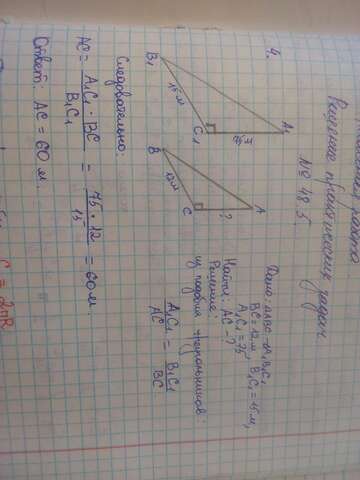 Решение практических задач
№ 485.
4.
B₁ 15 м C₁ 75 м A₁
B 12 м C ? A
Дано: ΔABC ~ A₁B₁C₁
BC = 12 м, B₁C₁ = 15 м,
A₁C₁ = 75
Найти: AC - ?
Решение:
из подобия треугольников:
A₁C₁ / AC = B₁C₁ / BC
Следовательно:
AC = A₁C₁ · BC / B₁C₁ = 75 · 12 / 15 = 60 м
Ответ: AC = 60 м.
C = 2πR